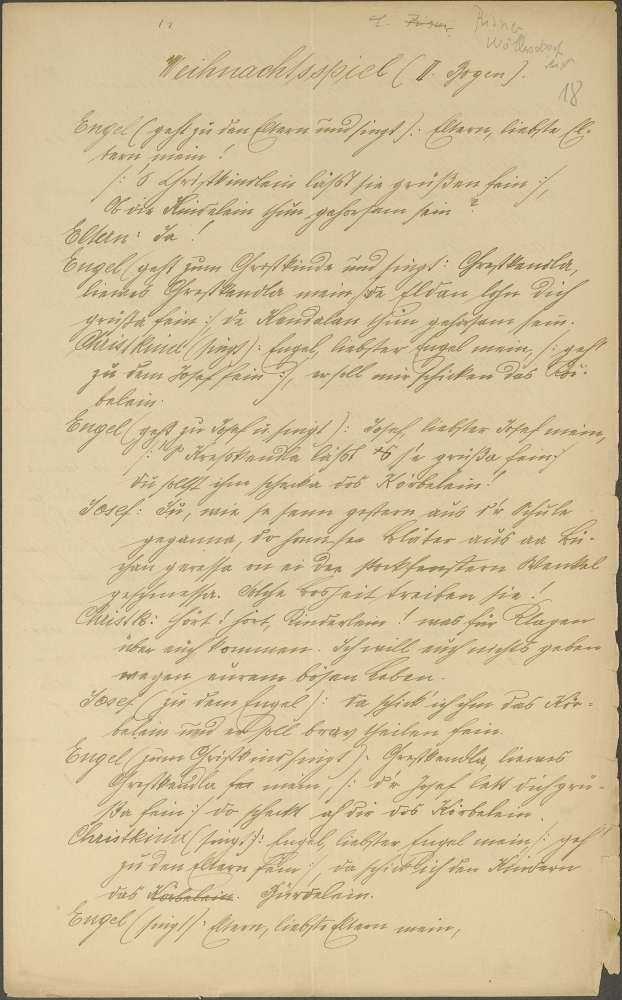 Weihnachtsspiel (II. Bogen).
18
Engel (geht zu den Eltern und singt): Eltern, liebste El-
tern mein!
/: 's Christkindlein läßt sie grüßen fein :/,
Ob die Kindelein thun gehorsam sein?
Eltern: Ja!
Engel (geht zum Christkinde und singt: Chrestkendla,
liewes Chrestkendla mein, /: de Eldan lohn dich
grüßa fein :/ de Kendalan thun gehorsam sein.
Christkind (singt): Engel, liebster Engel mein, /: geh
zu dem Josef fein :/, er soll mir schicken das Kör-
belein.
Engel (geht zu Josef u. singt): Josef, liebster Josef mein,
/: 's Krestkendla läßt grüßa fein :/
Du sollst ihm schecka dos Körbelein!
Josef: Ju, wie se senn gestern aus d'r Schule
geganna, do hom se Bläter aus a Bü-
chan geressa on ei Winkel
geschmessa. Solche Bosheit treiben sie!
Christk: Hört! hört, Kinderlein! was für Klagen
über euch kommen. Ich will euch nichts geben
wegen eurem bösen Leben.
Josef (zu dem Engel): Da schick ich ihm das Kör-
belein und er soll brav theilen fein.
Engel (zum Christkind singt): Chrestkendla, liewes
Chrestkendla mein, /: d'r Josef lett dich grü-
ßa fein :/ do scheckt ah dir dos Körbelein.
Christkind (singt): Engel, liebster Engel mein /: geh
zu den Eltern fein :/, da schick ich den Kindern
das Körbelein. Gürdelein.
Engel (singt): Eltern, liebste Eltern mein,